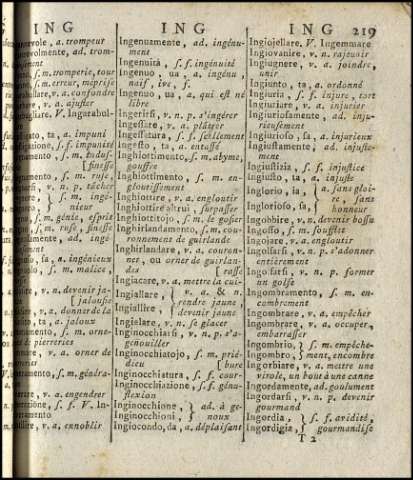 ING
arevole, a. trompeur
revolmente, ad. trom-
ement
mento, ſ. m. tromperie, tour
o, ſ. m. erreur, mépriſe
bullare, v. a. confondre
are, v. a. ajuſter
bugliare. V. Ingarabul-
gato, ta, a. impuni
igazione, ſ. f. impunité
amento, ſ. m. induſ-
[fineſſe
amento, ſ. m. ruſe,
arſi, v. n. p. tâcher
} ſ. m. ingé-
nieur
gno, ſ. m. génie, eſprit
ſ. m. ruſe, fineſſe
ad. ingé-
ment
oſo, ſa, a. ingénieux
ſ. m. malice,
v. n. devenir ja-
[jalouſie
v. a. donner de la
ta, a. jaloux
amento, ſ. m. orne-
de pierreries
are, v. a. orner de
ierries
mento, ſ. m. généra-
are, v. a. engendrer
zione, ſ. f. V. In-
ramento
ilire, v. a. ennoblir
ING
Ingenuamente, ad. ingénu-
ment
Ingenuità, ſ. f. ingénuité
Ingenuo, ua, a. ingénu,
naif, ive, f.
Ingenuo, ua, a. qui est né
libre
Ingerirſi, v. n. p. s'ingérer
Ingeſſare, v. a. plâtrer
Ingeſſatura, ſ. f. ſcellement
Ingeſto, ta, a. entaſſé
Inghiottimento, ſ. m. abyme,
gouffre
Inghiottimento, ſ. m. en-
gloutiſſement
Inghiottire, v. a. engloutir
Inghiottire altrui, ſurpaſſer
Inghiottitojo, ſ. m. le goſier
Inghirlandamento, ſ. m. cou-
ronnement de guirlande
Inghirlandare, v. a. couron-
ner, ou orner de guirlan-
des [raſſe
Ingiacare, v. a. mettre la cui-
Ingiallare, } v. a. & n.
rendre jaune,
Ingiallire, } devenir jaune
Ingielare, v. n. ſe glacer
Inginocchiarſi, v. n. p. s'a-
genouiller
Inginocchiatojo, ſ. m. prié-
dieu [bure
Inginocchiatura, ſ. f. cour-
Inginocchiazione, ſ. f. génu-
flexion
Inginocchione, } ad. à ge-
Inginocchioni, } noux
Ingiocondo, da, a. déplaiſant
ING 219
Ingiojellare. V. Ingemmare
Ingiovanire, v. n. rajeunir
Ingiugnere, v. a. joindre,
unir
Ingiunto, ta, a. ordonné
Ingiuria, ſ. f. injure, tort
Ingiuriare, v. a. injurier
Ingiurioſamente, ad. inju-
rieuſement
Ingiurioſo, ſa, a. injurieux
Ingiuſtamente, ad. injuſte-
ment
Ingiuſtizia, ſ. f. injuſtice
Ingiuſto, ta, a. injuſte
Inglorio, ia, } a. ſans gloi-
re, ſans
Inglorioſo, ſa, } honneur
Ingobbire, v. n. devenir boſſu
Ingoffo, ſ. m. ſoufflet
Ingojare, v. a. engloutir
Ingolfarſi, v. n. p. s'adonner
entiérement
Ingolfarſi, v. n. p. former
un golfe
Ingombramento, ſ. m. en-
combrement
Ingombrare, v. a. empêcher
Ingombrare, v. a. occuper,
embarraſſer
Ingombrio, } ſ. m. empêche-
Ingombro, } ment, encombre
Ingorbiare, v. a. mettre une
virole, un bout à une canne
Ingordamente, ad. goulument
Ingordarſi, v. n. p. devenir
gourmand
Ingordia, } ſ. f. avidité,
Ingordigia, } gourmandiſe
T 2